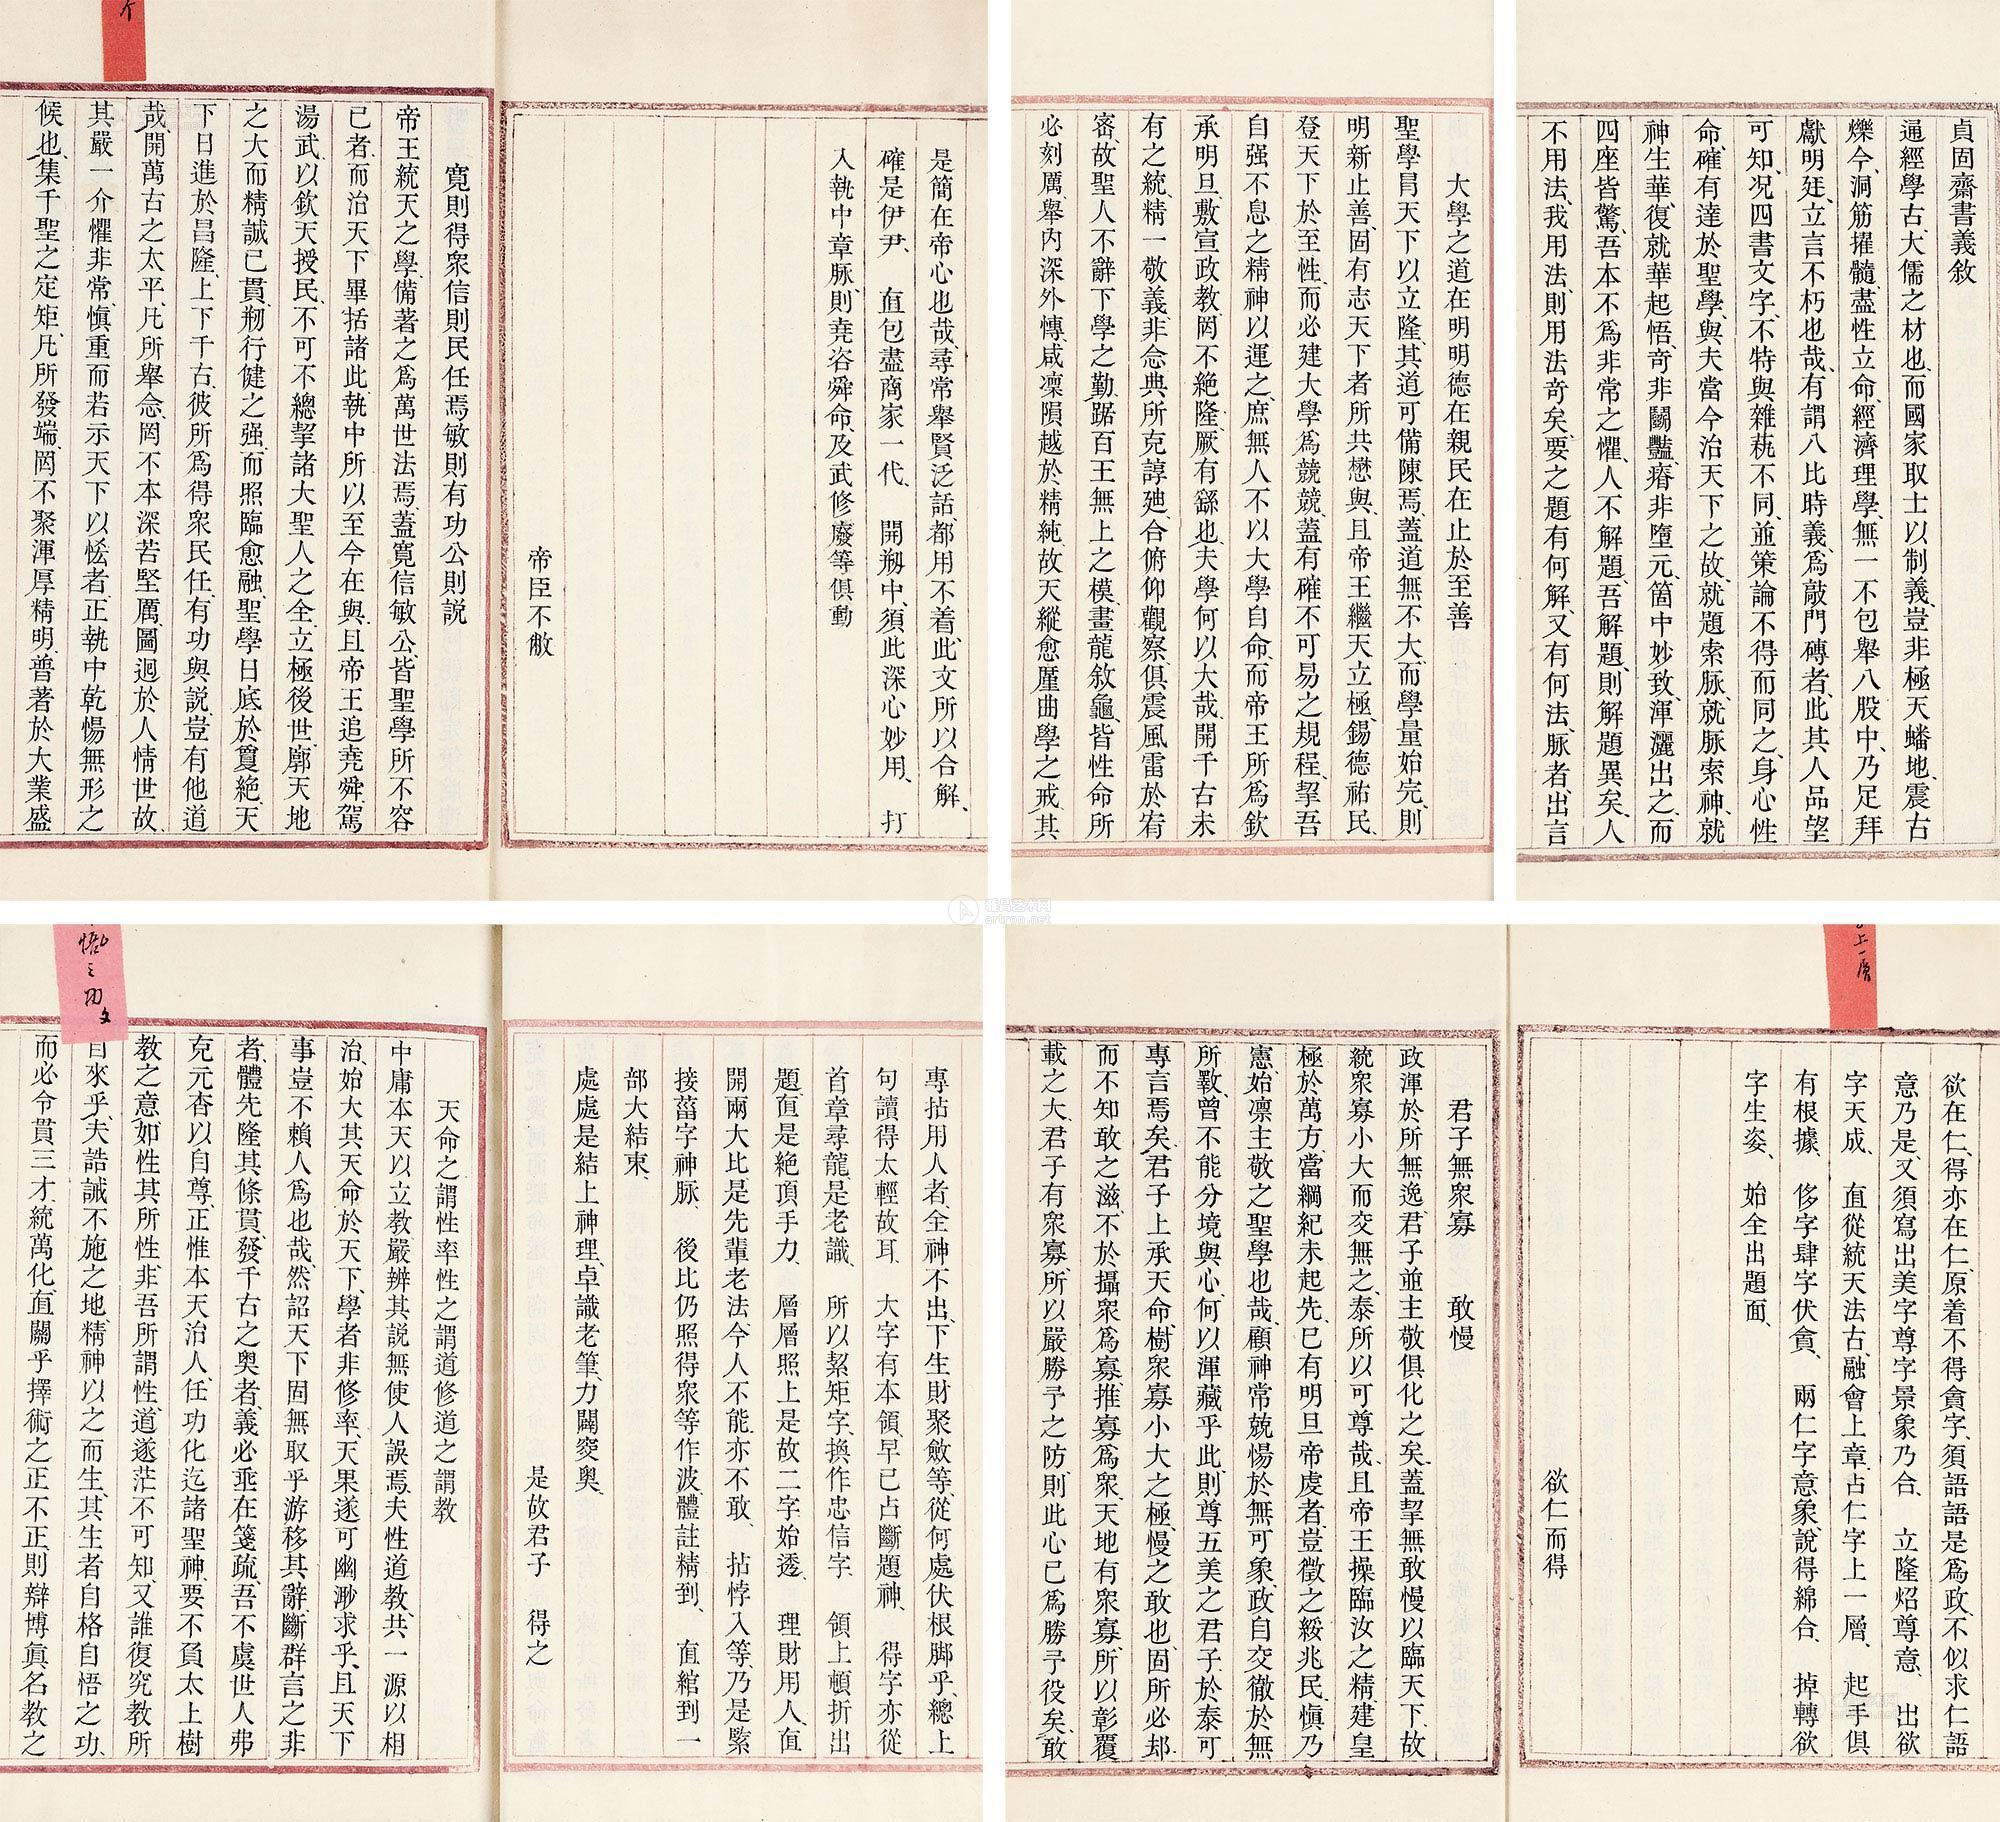 貞固齋書義敘
通經學古、大儒之材也、而國家取士以制義、豈非極天蟠地、震古
爍今、洞筋擢髓、盡性立命、經濟理學、無一不包舉八股中、乃足拜
獻明廷、立言不朽也哉、有謂八比時義、爲敲門磚者、此其人品望
可知、况四書文字、不特與雜蓺不同、並策論不得而同之、身心性
命、確有達於聖學、與夫當今治天下之故、就題索脉、就脉索神、就
神生華、復就華起悟、奇非鬭豔、瘠非墮元、箇中妙致、渾灑出之、而
四座皆驚、吾本不爲非常之懼、人不解題、吾解題、則解題異矣、人
不用法、我用法、則用法奇矣、要之題有何解、又有何法、脉者、出言
大學之道在明明德在親民在止於至善
聖學冐天下以立隆、其道可備陳焉、蓋道無不大、而學量始完、則
明新止善、固有志天下者所共懋與、且帝王繼天立極、錫德祐民、
登天下於至性、而必建大學爲兢兢、蓋有確不可易之規程、挈吾
自强不息之精神以運之、庶無人不以大學自命、而帝王所爲欽
承明旦、敷宣政教、罔不絶隆、厥有繇也、夫學何以大哉、開千古未
有之統、精一敬義、非念典所克諄廸、合俯仰觀察、俱震風雷於宥
密、故聖人不辭下學之勤、踞百王無上之模、畫龍敘龜、皆性命所
必刻厲、舉内深外慱、咸凜隕越於精純、故天縱愈廑曲學之戒、其
是簡在帝心也哉、尋常舉賢泛話、都用不着、此文所以合解、
確是伊尹、　直包盡商家一代、　開刱中、須此深心妙用、　打
入執中章脉、則堯咨舜命、及武修廢等俱動
帝臣不敝
寛則得衆信則民任焉敏則有功公則説
帝王統天之學、備著之爲萬世法焉、蓋寛信敏公、皆聖學所不容
已者、而治天下畢括諸此、執中所以至今在與、且帝王追堯舜、駕
湯武、以欽天授民、不可不總挈諸大聖人之全、立極後世、廓天地
之大而精誠已貫、刱行健之强、而照臨愈融、聖學日底於敻絶、天
下日進於昌隆、上下千古、彼所爲得衆民任、有功與説、豈有他道
哉、開萬古之太平、凡所舉念、罔不本深苦堅厲、圖迥於人情世故、
其嚴一介懼非常、愼重而若示天下以恡者、正執中乾惕無形之
候也、集千聖之定矩、凡所發端、罔不聚渾厚精明、普著於大業盛
欲在仁、得亦在仁、原着不得貪字、須語語是爲政、不似求仁語
意乃是、又須寫出美字尊字景象乃合、　立隆炤尊意、　出欲
字天成、　直從統天法古、融會上章、占仁字上一層、　起手俱
有根據、　侈字肆字伏貪、　兩仁字意象、説得綿合、　掉轉欲
字生姿、　始全出題面、
欲仁而得
君子無衆寡　敢慢
政渾於所無逸、君子並主敬俱化之矣、蓋挈無敢慢以臨天下、故
統衆寡小大而交無之、泰所以可尊哉、且帝王操臨汝之精、建皇
極於萬方、當綱紀未起先、已有明旦帝虔者、豈徵之綏兆民、愼乃
憲、始凛主敬之聖學也哉、顧神常兢惕於無可象、政自交徹於無
所斁、曾不能分境與心、何以渾藏乎此、則尊五美之君子、於泰可
專言焉矣、君子上承天命、樹衆寡小大之極、慢之敢也、固所必刦、
而不知敢之滋、不於攝衆爲寡、推寡爲衆、天地有衆寡、所以彰覆
載之大、君子有衆寡、所以嚴勝予之防、則此心已爲勝予役矣、敢
專拈用人者、全神不出、下生財聚斂等、從何處伏根脚乎、總上
句讀得太輕故耳、　大字有本領、早已占斷題神、　得字亦從
首章尋龍、是老識、　所以絜矩字、換作忠信字、　領上頓折出
題、直是絶頂手力、　層層照上是故二字始透、　理財用人、直
開兩大比、是先輩老法、今人不能、亦不敢、　拈悖入等、乃是緊
接菑字神脉、　後比仍照得衆等作波、體註精到、　直綰到一
部大結束、
處處是結上神理、卓識老筆、力闢窔奥、
是故君子　得之
天命之謂性率性之謂道修道之謂教
中庸本天以立教、嚴辨其説無使人誤焉、夫性道教、共一源以相
治、始大其天命於天下、學者非修率、天果遂可幽渺求乎、且天下
事豈不賴人爲也哉、然詔天下固無取乎游移其辭、斷群言之非
者、體先隆其條貫、發千古之奥者、義必垂在箋疏、吾不虞世人弗
克元杳以自尊、正惟本天治人、任功化迄諸聖神、要不負太上樹
教之意、如性其所性、非吾所謂性、道遂茫不可知、又誰復究教所
自來乎、夫誥誡不施之地、精神以之而生、其生者自格自悟之功、
而必令貫三才、統萬化、直關乎擇術之正不正、則辯博眞名教之
雅昌艺术网
artron.net